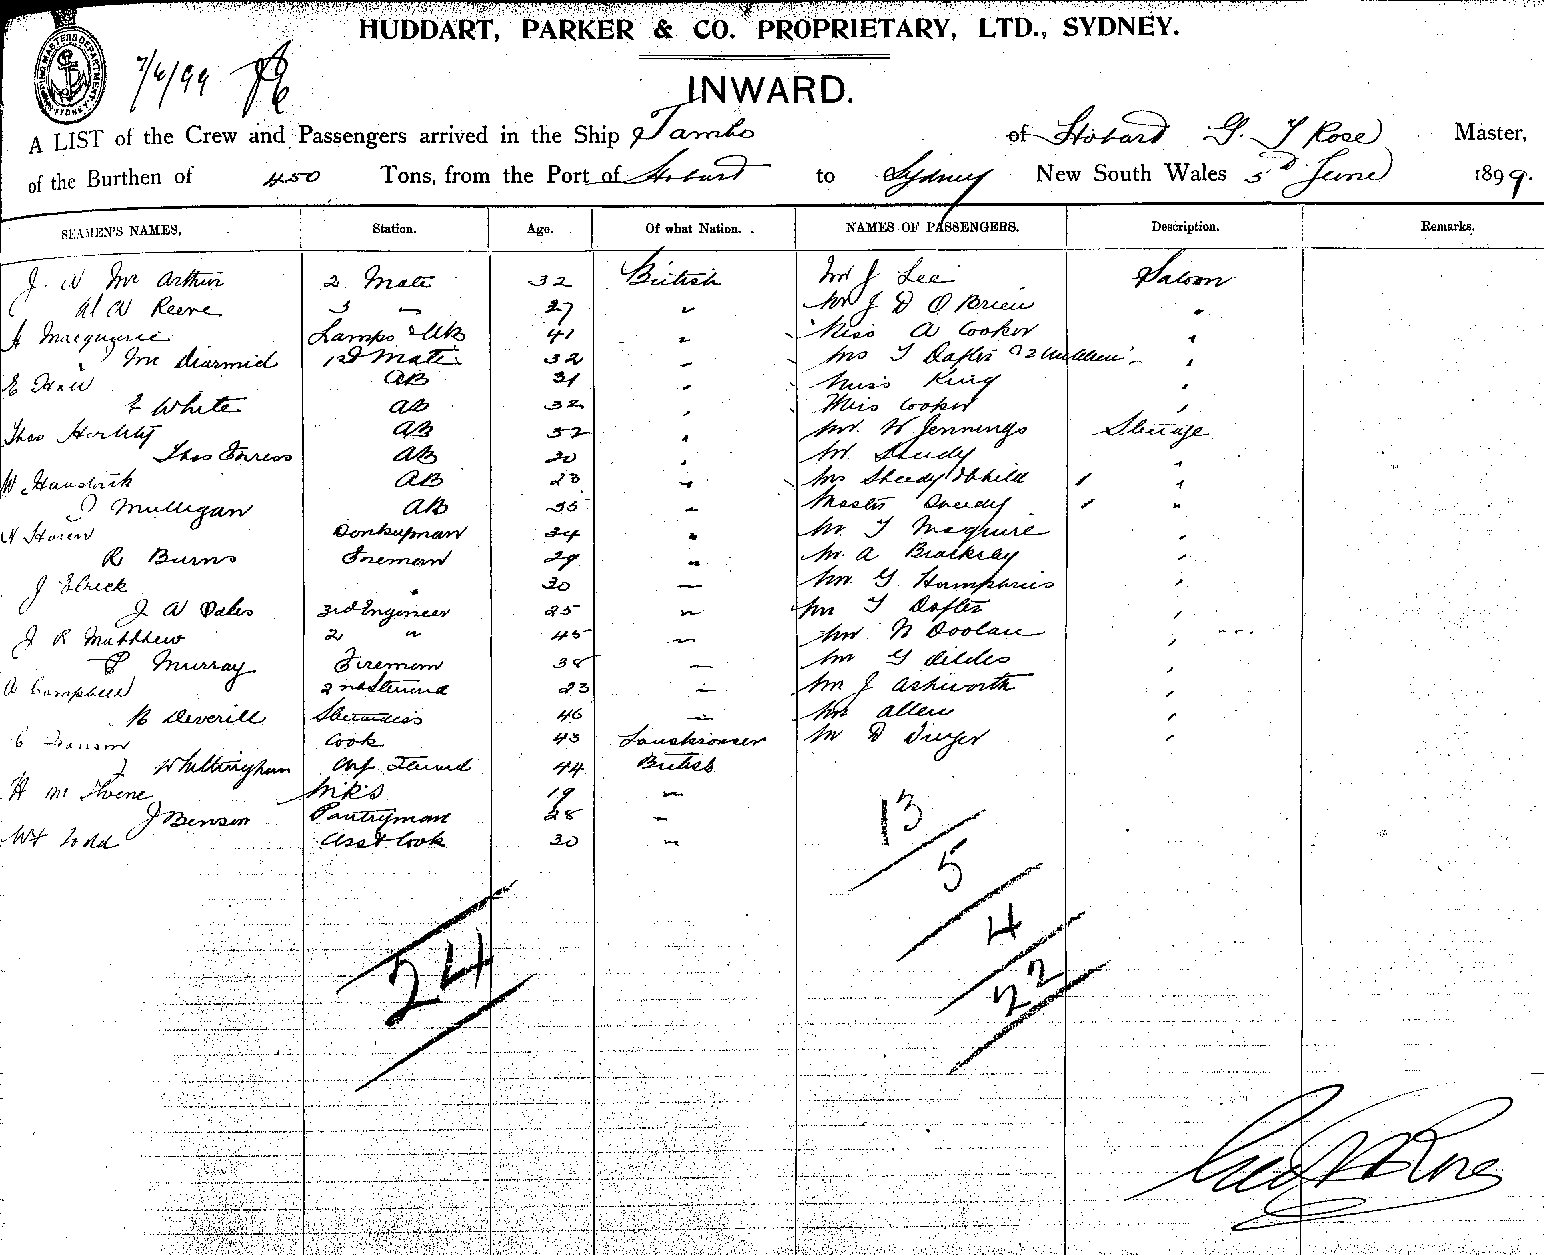 HUDDART, PARKER & CO. PROPRIETARY, LTD., SYDNEY.
7/6/99
INWARD.
A LIST of the Crew and Passengers arrived in the Ship Tambo of Hobart G. T Rose Master,
of the Burthen of 450 Tons, from the Port of Hobart to Sydney New South Wales 5th June 1899.
SEAMEN'S NAMES, Station. Age. Of what Nation. NAMES OF PASSENGERS. Description. Remarks.
J. W Mc Arthur 2 Mate 32 British Mr J Lee Saloon
W Reeve 3 " 27 " Mr J D O'Brien "
Macquarie Lamps & AB 41 " Miss A Cooker "
Mc Diarmid 1st Mate 32 " Mrs T Dafter & 2 children "
E AB 31 " Miss King "
White AB 32 " Miss Cooper "
Thos AB 52 " Mr W Jennings Steerage
Thos AB 30 " Mr Sheedy "
W AB 23 " Mrs Sheedy & child " "
J Mulligan AB 35 " Master Sheedy " "
Donkeyman 34 " Mr T Maguire "
R Burns Fireman 29 " Mr A Brackley "
J " 30 " Mr G Humphries "
J. A Dales 3rd Engineer 25 " Mr T Dafter "
J R Matthew 2 " 45 " Mr N Doolan "
P Murray Fireman 38 " Mr G "
A Campbell 2nd Steward 23 " Mr J Ashworth "
R Deverill Stewardess 46 " Mr Allen "
Cook 43 Mr D "
J Whittingham Chf Steward 44 British
H 19 "
J Benson Pantryman 28 "
Wm Todd Asst Cook 30 "
13
5
4
24
22
Rose